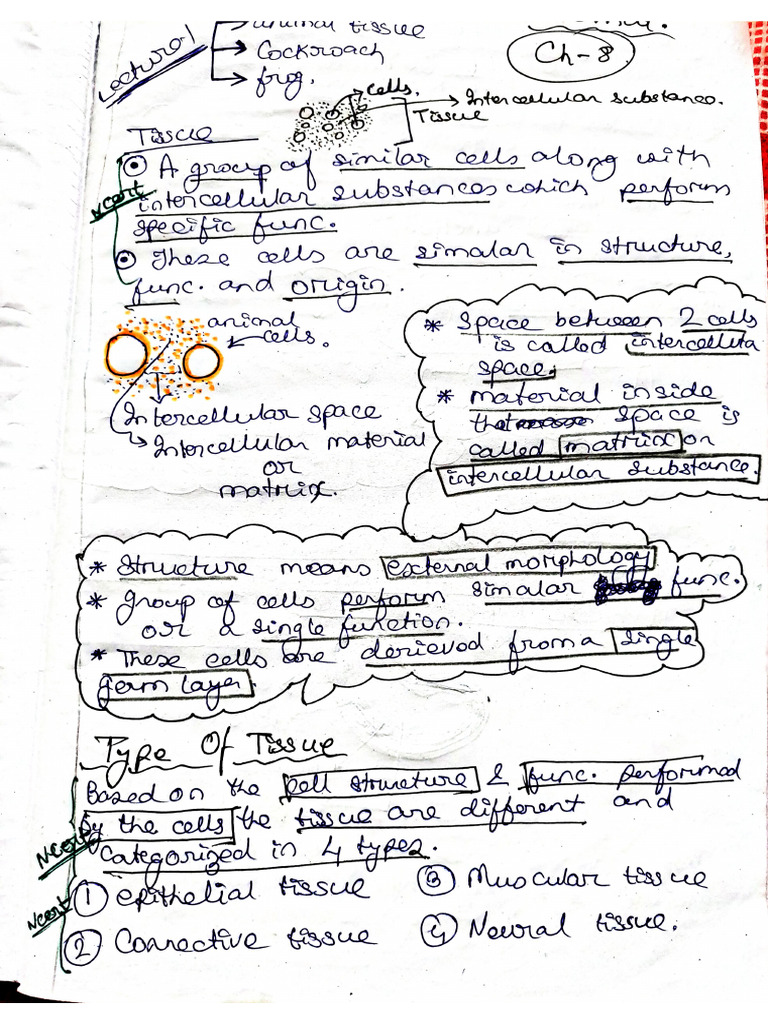 Lecture-1
animal tissue
Cockroach
frog.
Ch-8
cells.
Intercellular substance.
Tissue
Tissue
A group of similar cells along with
intercellular substances which perform
specific func.
Ncert
These cells are simalar in structure,
func. and origin.
animal
cells.
Intercellular space
Intercellular material
or
matrix.
* Space between 2 cells
is called intercellula
space.
* material inside
that space is
called matrix or
intercellular substance.
* Structure means external morphology
* Group of cells perform simalar func.
or a single function.
* These cells are derieved from a single
germ layer.
Type Of Tissue
Based on the cell structure & func. performed
by the cells the tissue are different and
categorized in 4 types.
Ncert
Ncert
① epithelial tissue
② Connective tissue
③ Muscular tissue
④ Neural tissue.